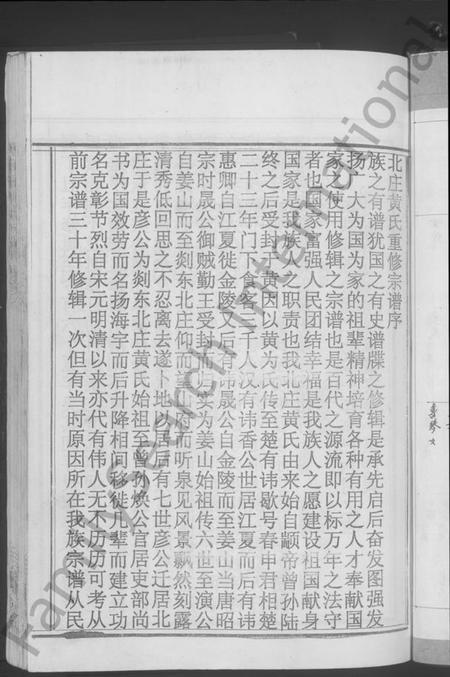 北庄黄氏重修宗谱序
族之有谱犹国之有史谱牒之修辑是承先启后奋发图强发
扬大为国为家的祖辈精神培育各种有用之人才奉献国
家之使用修辑之宗谱也是百代之源流即以标万年之法守
者也国家富强人民团结幸福是我族人之愿建设祖国献身
国家是我族人之职责也我北庄黄氏由来始自颛帝曾孙陆
终之后受封于黄因以黄为氏传至楚有讳歇号春申君相楚
二十三年门下食客三千人汉有讳香公世居江夏而后有讳
惠卿自江夏徙金陵又后有讳晟公自金陵而至姜山当唐昭
宗时晟公御贼勤王受封归
为姜山始祖传六世至演公
自姜山而至剡东北庄仰而
而听泉见风景飘然刻露
清秀低回思之不忍离去遂卜地以居后有七世彦公迁居北
庄于是彦公为剡东北庄黄氏始祖至曾孙焕公官居吏部尚
书为国效劳而名扬海宇而后升降相间移徙九辈而建立功
名克彰节烈自宋元明清以来亦代有伟人无不历历可考从
前宗谱三十年修辑一次但有当时原因所在我族宗谱从民
FamilySearch International